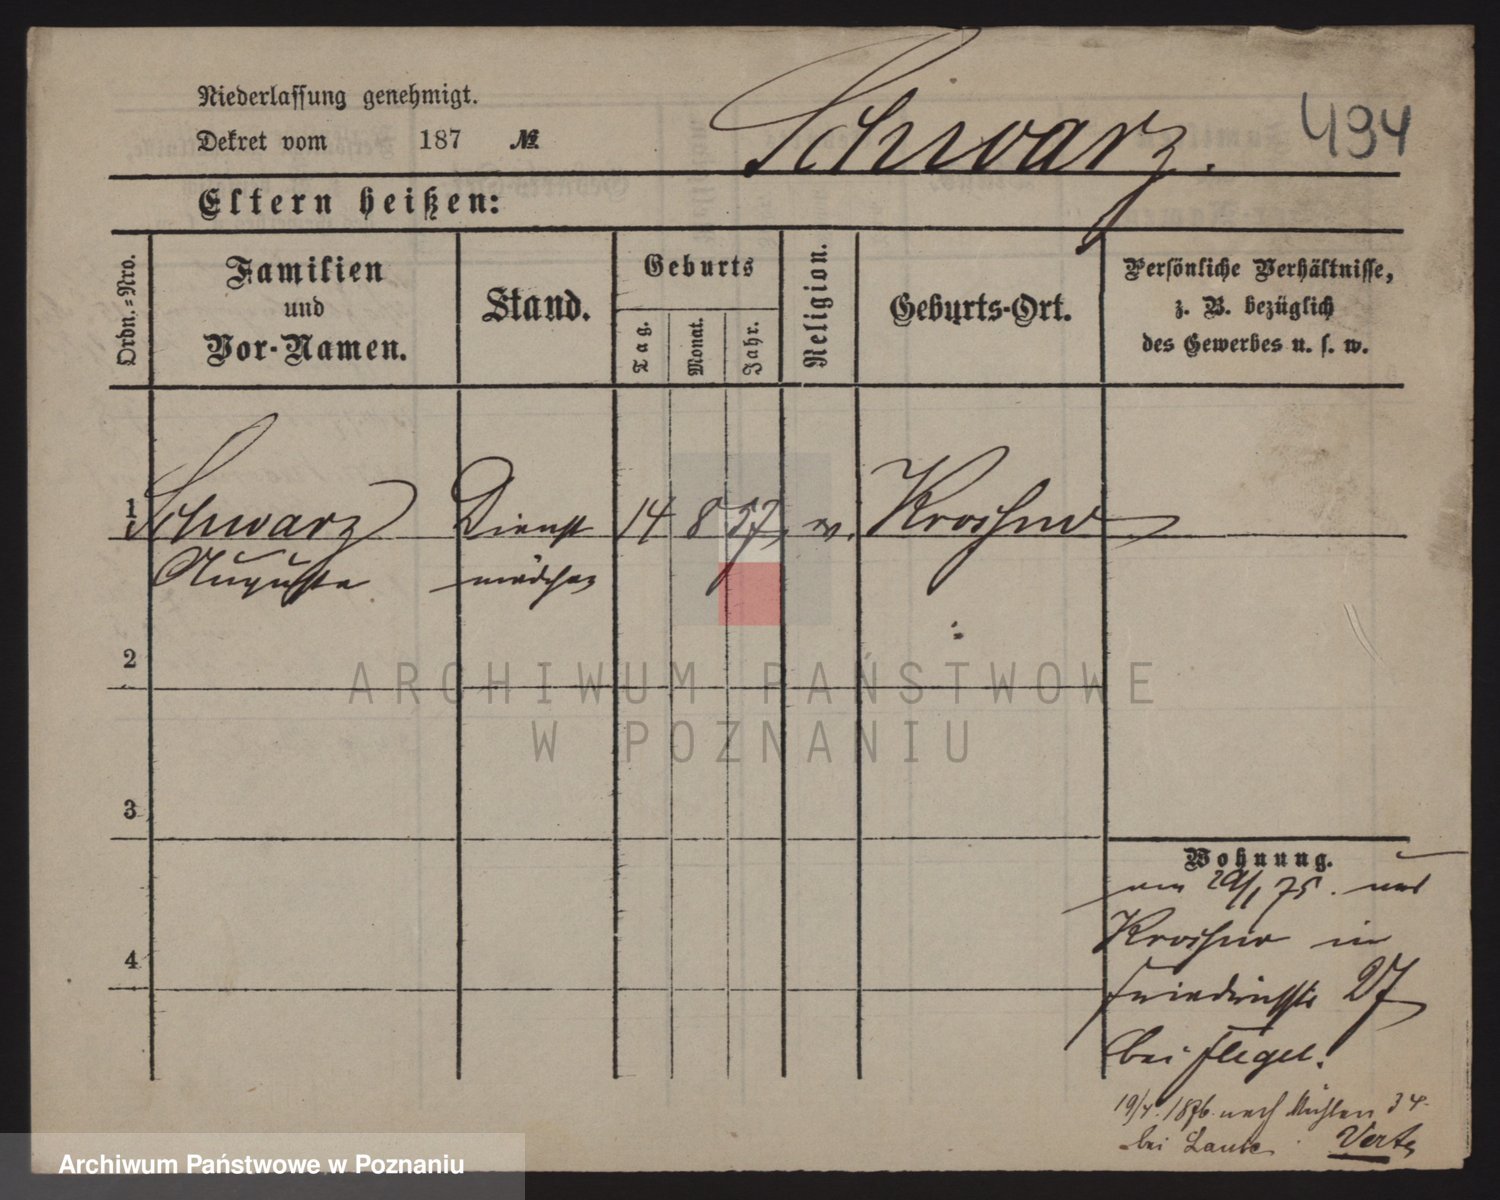 Niederlassung genehmigt.
Dekret vom 187 №
Schwarz.
494
Eltern heißen:
Ordn.-Nro.
Familien
und
Vor-Namen.
Stand.
Geburts
Tag.
Monat.
Jahr.
Religion.
Geburts-Ort.
Persönliche Verhältnisse,
z. B. bezüglich
des Gewerbes u. s. w.
1 Schwarz Dienst 14 8 57, ev. Kroschno
Auguste mädchen
2
3
4
Wohnung.
am 29/1 75. aus
Kroschno in
Friedrichstr 27
bei Fliegel.
19/4. 1876 nach Mühlen 34
bei Verte
ARCHIWUM PAŃSTWOWE
W POZNANIU
Archiwum Państwowe w Poznaniu